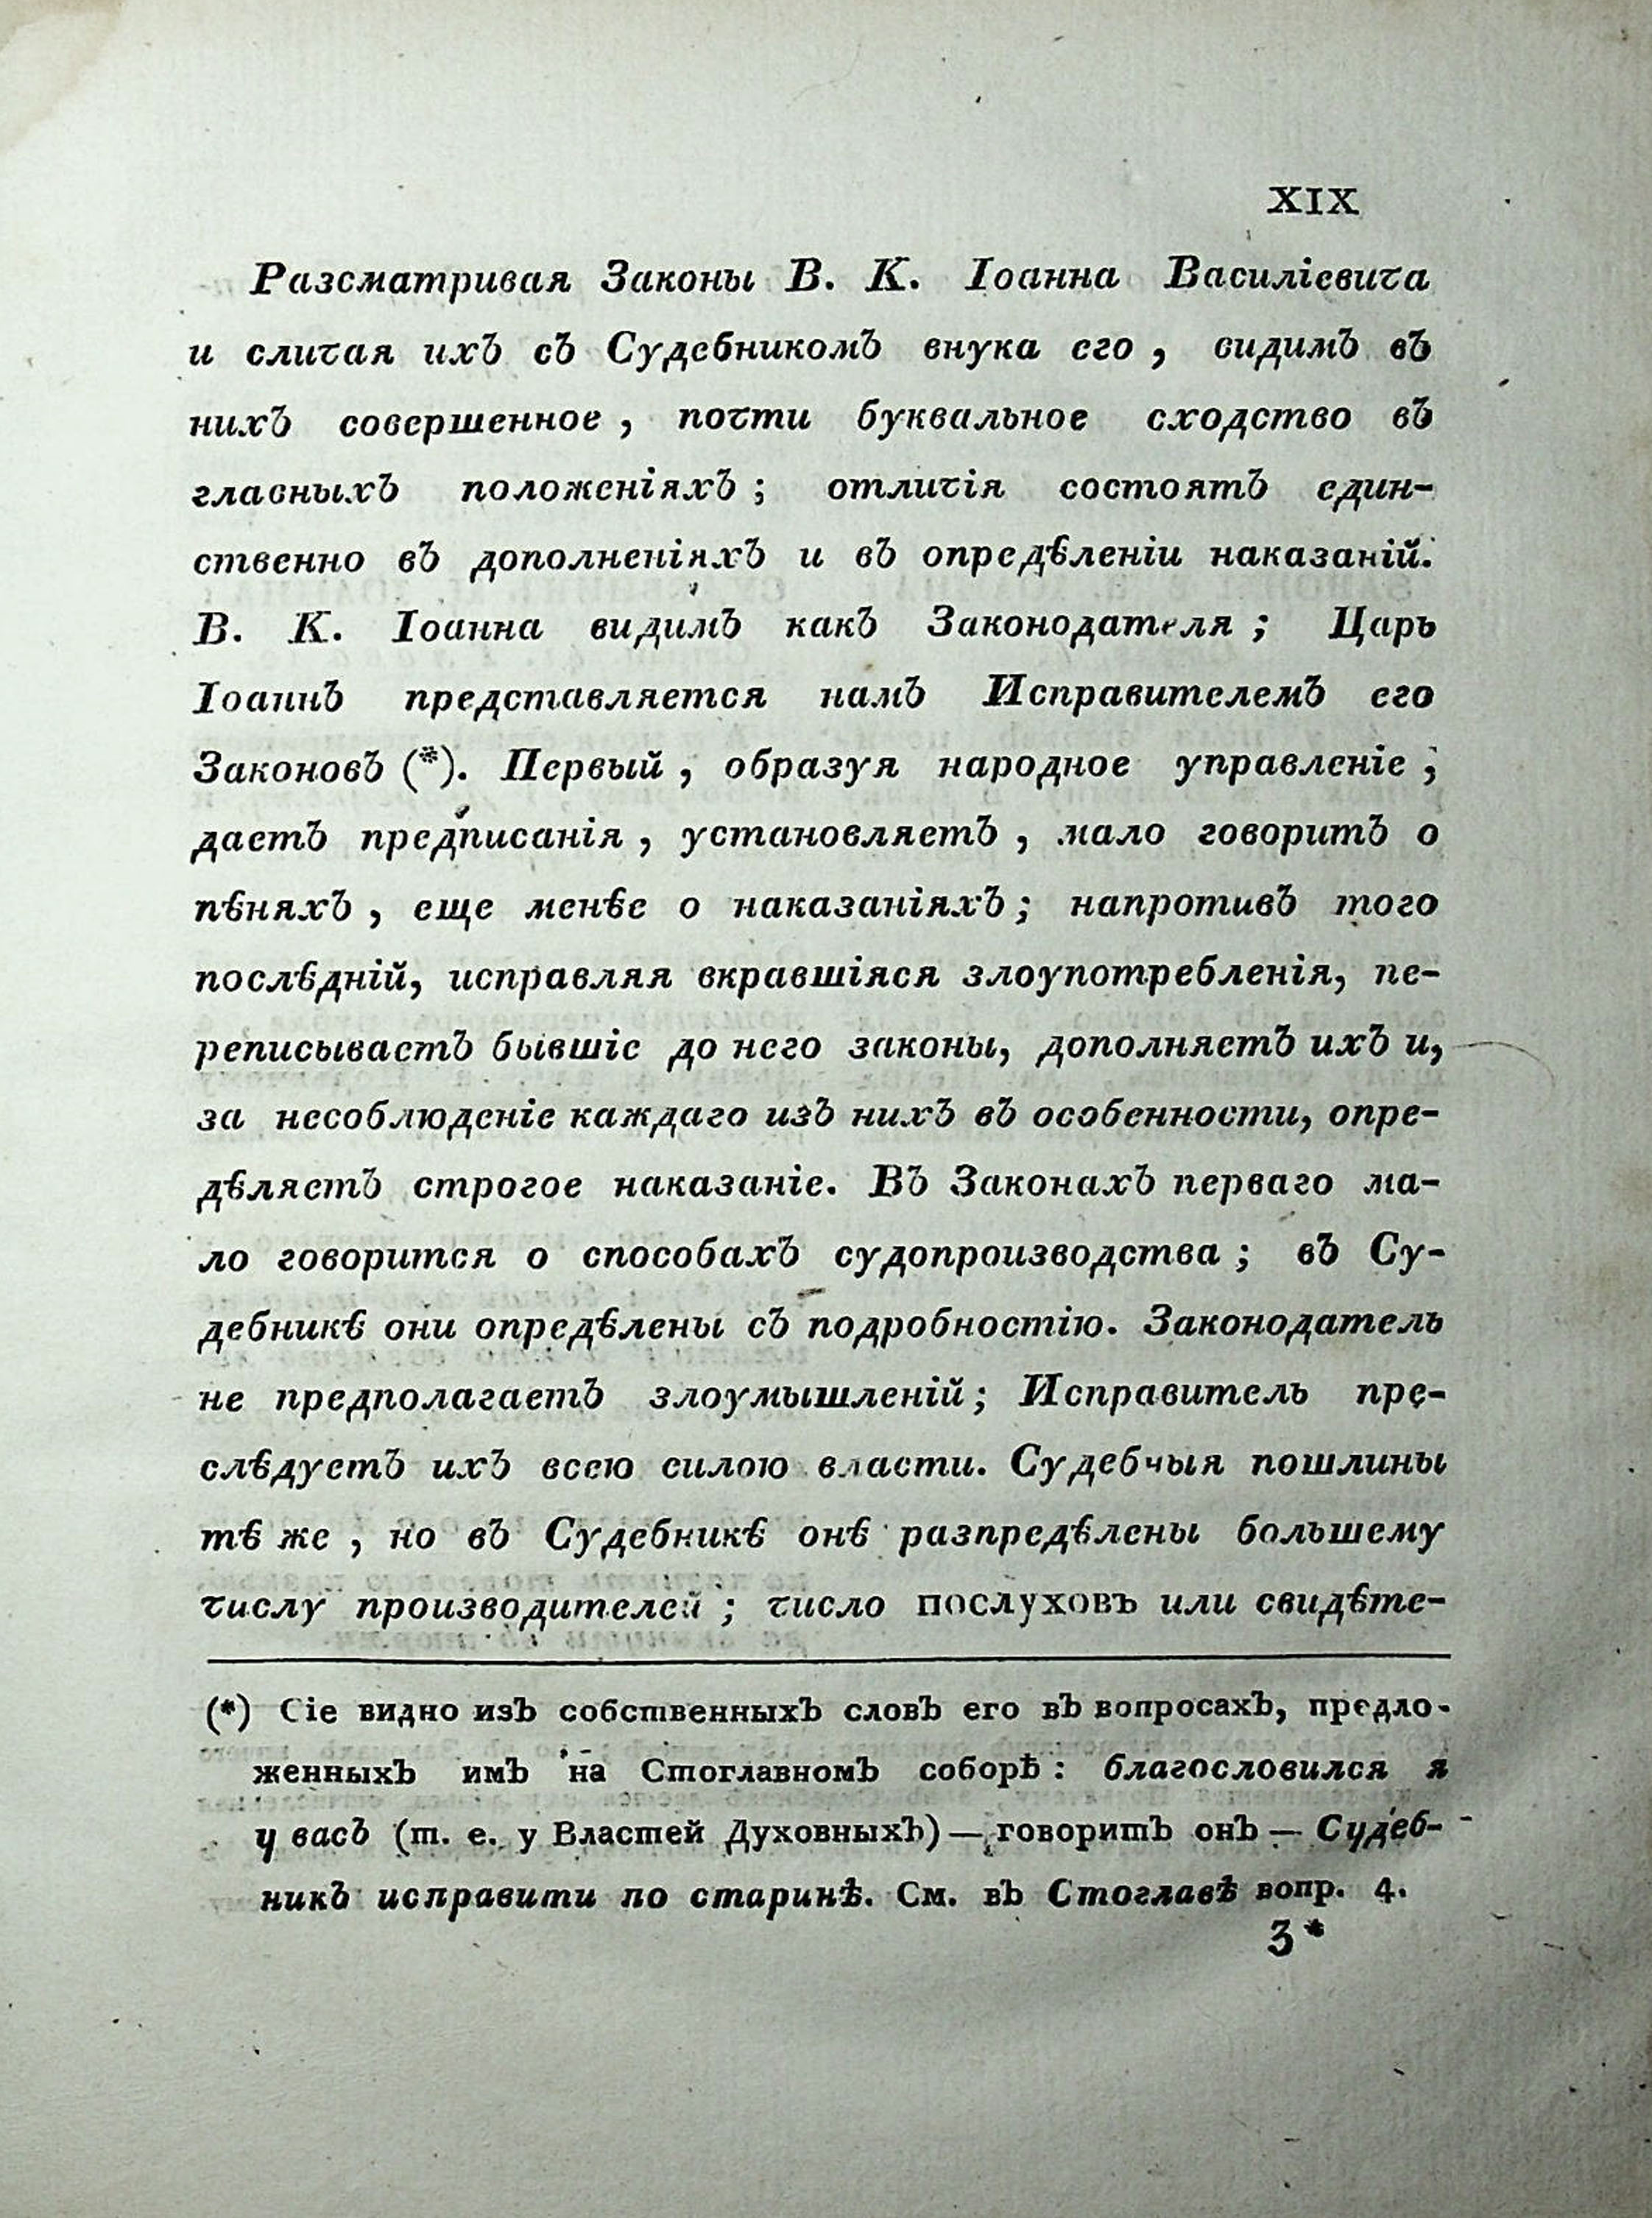 XIX
Разсматривая Законы В. К. Іоанна Василіевича
и сличая ихъ съ Судебникомъ внука его, видимъ въ
нихъ совершенное, почти буквальное сходство въ
главныхъ положеніяхъ; отличія состоятъ един-
ственно въ дополненіяхъ и въ опредѣленіи наказаній.
В. К. Іоанна видимъ какъ Законодателя; Царь
Іоаннъ представляется намъ Исправителемъ его
Законовъ (*). Первый, образуя народное управленіе,
даетъ предписанія, установляетъ, мало говоритъ о
пѣняхъ, еще менѣе о наказаніяхъ; напротивъ того
послѣдній, исправляя вкравшіяся злоупотребленія, пе-
реписываетъ бывшіе до него законы, дополняетъ ихъ и,
за несоблюденіе каждаго изъ нихъ въ особенности, опре-
дѣляетъ строгое наказаніе. Въ Законахъ перваго ма-
ло говорится о способахъ судопроизводства; въ Су-
дебникѣ они опредѣлены съ подробностію. Законодатель
не предполагаетъ злоумышленій; Исправитель пре-
слѣдуетъ ихъ всею силою власти. Судебныя пошлины
тѣ же, но въ Судебникѣ онѣ разпредѣлены большему
числу производителей; число послуховъ или свидѣте-
(*) Сіе видно изъ собственныхъ словъ его въ вопросахъ, предло-
женныхъ имъ на Стоглавномъ соборѣ: благословился я
у васъ (т. е. у Властей Духовныхъ) — говоритъ онъ — Судеб-
никъ исправити по старинѣ. См. въ Стоглавѣ вопр. 4.
3*